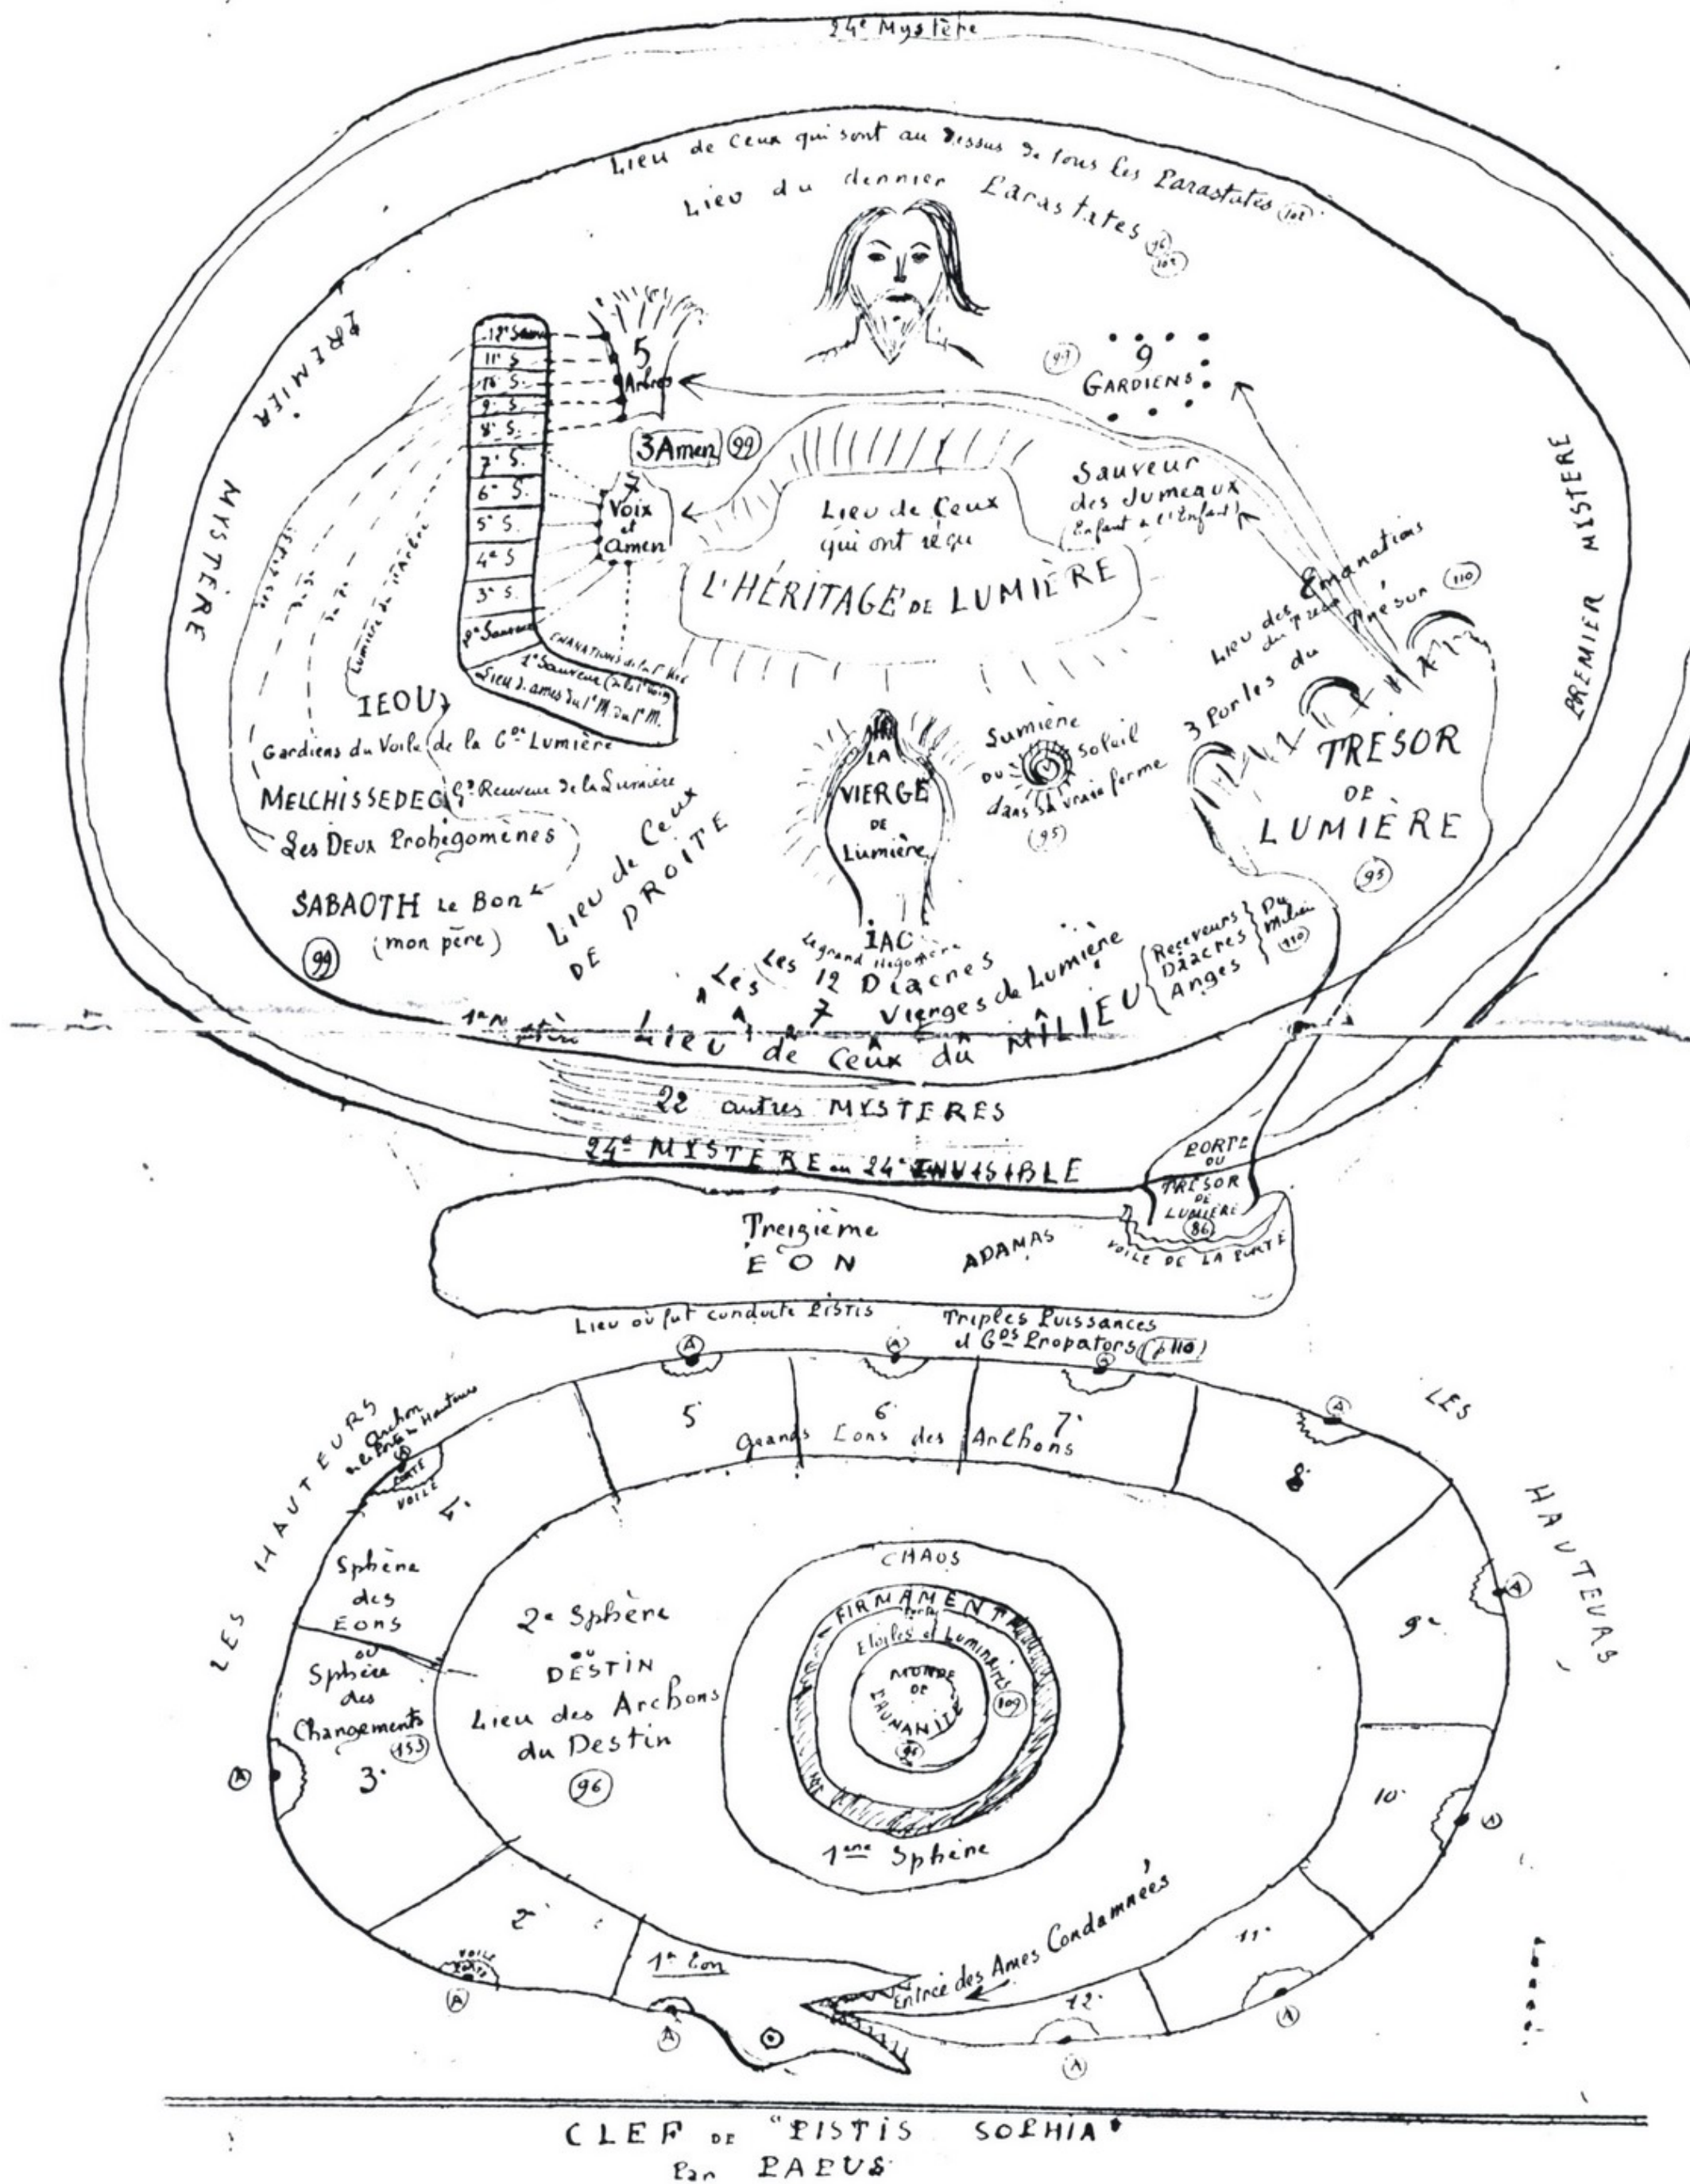 24e Mystère
Lieu de Ceux qui sont au Dessus de tous les Parastates (102)
Lieu du dernier Parastates (96) (102)
PREMIER
MYSTÈRE
PREMIER MYSTERE
12e Sauv
11e S.
10e S.
9e S.
8e S.
7e S.
6e S.
5e S.
4e S
3e S.
2e Sauveur
1e Sauveur
Lieu d. ames du 1e M. du 1e M.
5
Arbres
3 Amen (99)
7
Voix
et
Amen
9
GARDIENS
Sauveur
des Jumeaux
(Enfant de l'Enfant)
Lieu de Ceux
qui ont reçu
L'HÉRITAGE DE LUMIÈRE
Lieu des Emanations
3 Portes du Trésor (110)
TRESOR
DE
LUMIÈRE
(95)
Lumière de l'Arbre
IEOU
Gardiens du Voile de la Gde Lumière
MELCHISSEDEC Gd Receveur de la Lumière
Les DEUX Prohégomènes
SABAOTH Le Bon
(mon père)
(99)
Lieu de Ceux
DE DROITE
LA
VIERGE
DE
Lumière
Lumière
DU Soleil
dans sa vraie forme
(95)
IAO
Le grand Hégomène
Les 12 Diacres
Les 7 Vierges de Lumière
Lieu de Ceux du MILIEU
Receveurs
Diacres
Anges
Du
Milieu
(110)
22 autres MYSTERES
24e MYSTÈRE ou 24e INVISIBLE
PORTE
DU
TRÉSOR
DE
LUMIÈRE
(86)
VOILE DE LA PORTE
Treizième
ÉON
ADAMAS
Lieu où fut conduite PISTIS
Triples Puissances
et Gds Propators (p 110)
LES HAUTEURS
LES HAUTEURS
Archon
de la Porte des Hauteurs
A
PORTE
VOILE
4e
5e
6e
7e
Grands Eons des Archons
8e
9e
10e
11e
12e
Sphère
des
Eons
ou
Sphère
des
Changements
(153)
3e
2e
VOILE
PORTE
1er Eon
A
A
A
A
A
A
A
A
A
A
A
2e Sphère
ou
DESTIN
Lieu des Archons
du Destin
(96)
CHAOS
FIRMAMENT
Porte
Etoiles et Luminaires
(109)
MONDE
DE
L'HUMANITÉ
1ere Sphère
Entrée des Ames Condamnées
CLEF DE "PISTIS SOPHIA"
Par PAPUS